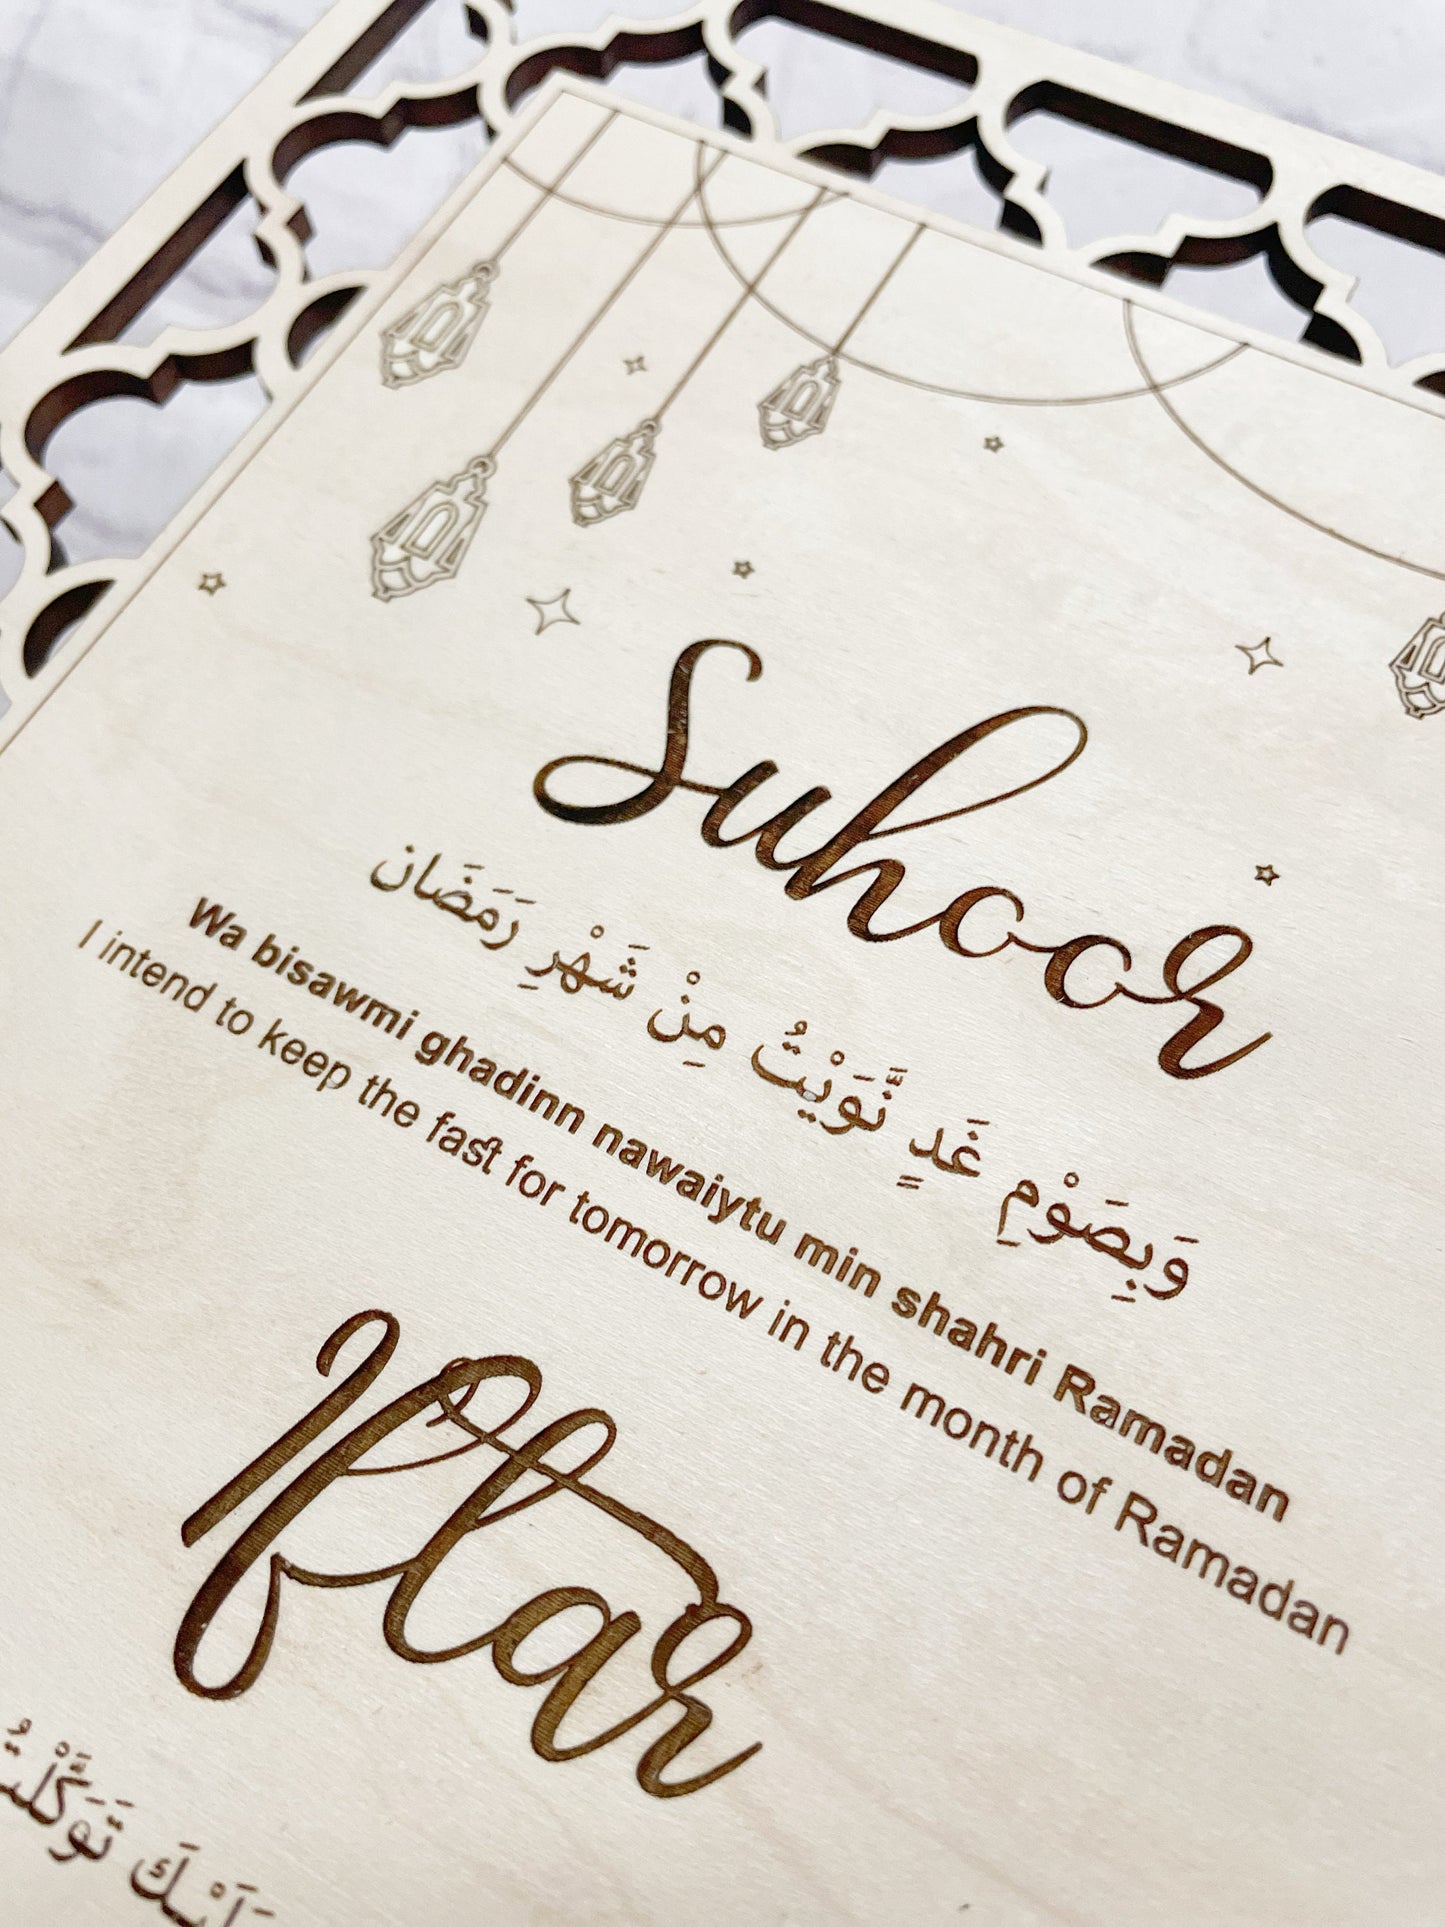 Suhoor
وَبِصَوْمِ غَدٍ نَّوَيْتُ مِنْ شَهْرِ رَمَضَان
Wa bisawmi ghadinn nawaiytu min shahri Ramadan
I intend to keep the fast for tomorrow in the month of Ramadan
Iftar